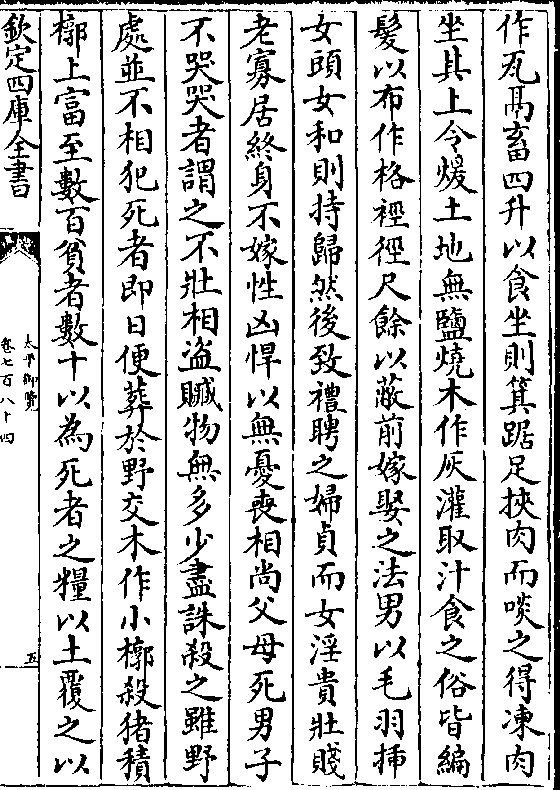 作瓦鬲畜四升以食坐則箕踞足挾肉而啖之得凍肉
坐其上令煖土地無鹽燒木作灰灌取汁食之俗皆編
髮以布作格裎徑尺餘以蔽前嫁娶之法男以毛羽揷
女頭女和則持歸然後致禮聘之婦貞而女淫貴壯賤
老寡居終身不嫁性凶悍以無憂喪相尚父母死男子
不哭哭者謂之不壯相盗贓物無多少盡誅殺之雖野
處並不相犯死者即日便葬於野交木作小槨殺猪積
槨上富至數百貧者數十以為死者之糧以土覆之以
欽定四庫全書
太平御覽
卷七百八十四
五